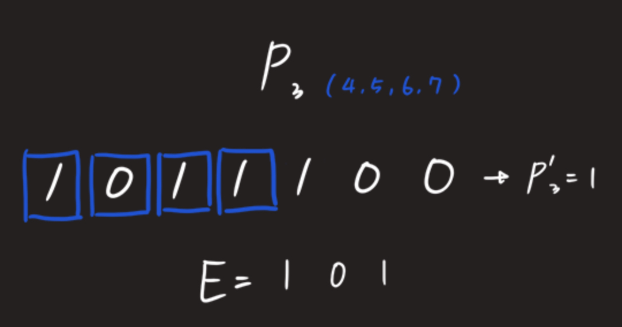 P₃ (4.5.6.7)
1 0 1 1 1 0 0 → P₃' = 1
E = 1 0 1